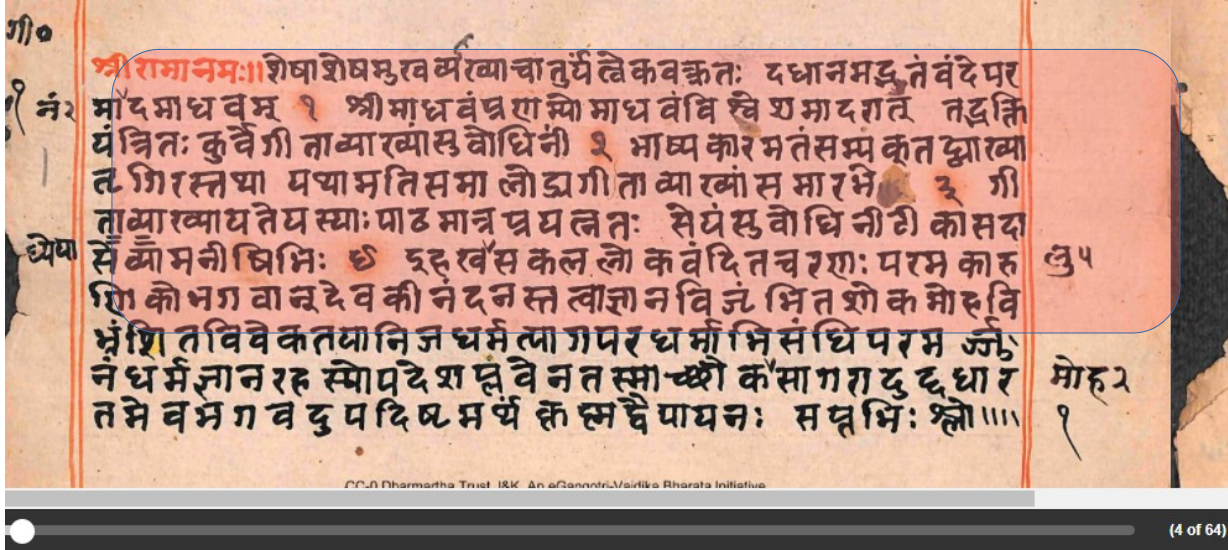 गी०
श्रीरामानमः॥शेषाशेषमुखव्याख्याचातुर्यंत्वेकवक्त्रतः दधानमद्भुतंवंदेपर
१ नं२ मादमाधवम् १ श्रीमाधवंप्रणम्योमाधवंविश्वेशमादरात् तद्भक्ति
यंत्रितः कुर्वेगीताव्याख्यांसुवोधिनीं २ भाष्यकारमतंसम्यक्तद्व्याख्या
तृगिरस्तथा यथामतिसमालोड्यगीताव्याख्यांसमारभे ३ गी
ताव्याख्यायतेयस्याः पाठमात्रप्रयत्नतः सेयंसुवोधिनीटीकासदा
सेव्यामनीषिभिः ४ इहखसकललोकवंदितचरणाः परमकारु लु५
णिकोभगवान्देवकीनंदनस्तत्वाज्ञानविजृंभितशोकमोहवि
भ्रंशितविवेकतयानिजधर्मत्यागपरधर्माभिसंधिपरम र्जु
नंधर्मज्ञानरहस्योपदेशप्लवेनतस्माच्छोकसागरादुद्दधार मोह२
तमेवभगवदुपदिष्टमर्थंकृष्णद्वैपायनः सप्तभिः श्लो १
CC-0 Dharmartha Trust J&K. An eGangotri-Vaidika Bharata Initiative
(4 of 64)